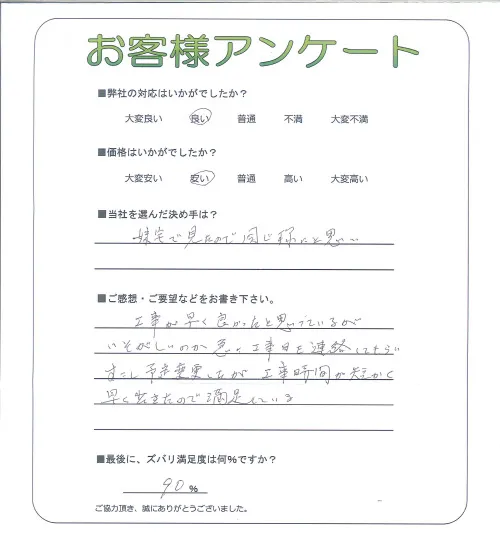 お客様アンケート
■弊社の対応はいかがでしたか？
大変良い 良い 普通 不満 大変不満
■価格はいかがでしたか？
大変安い 安い 普通 高い 大変高い
■当社を選んだ決め手は？
妹宅で見たので同じ様にと思い
■ご感想・ご要望などをお書き下さい。
工事が早く良かったと思っているが
いそがしいのか急に工事日を連絡して
すこし予定変更したが 工事時間が短かく
早く出きたので満足している
■最後に、ズバリ満足度は何％ですか？
90 ％
ご協力頂き、誠にありがとうございました。